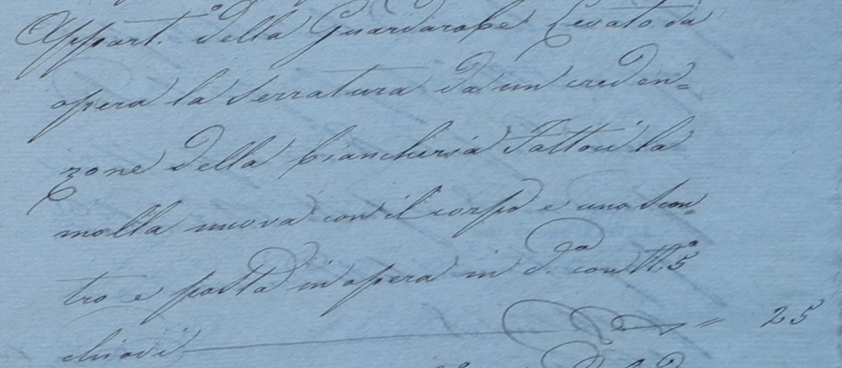 Appart. della Guardarobe Levato da
opera la Serratura da un creden=
zone della biancheria Fattovi la
molla nuova con il corpo e uno Scon=
tro e posta in opera in d.º con N.º 5
chiodi " 25